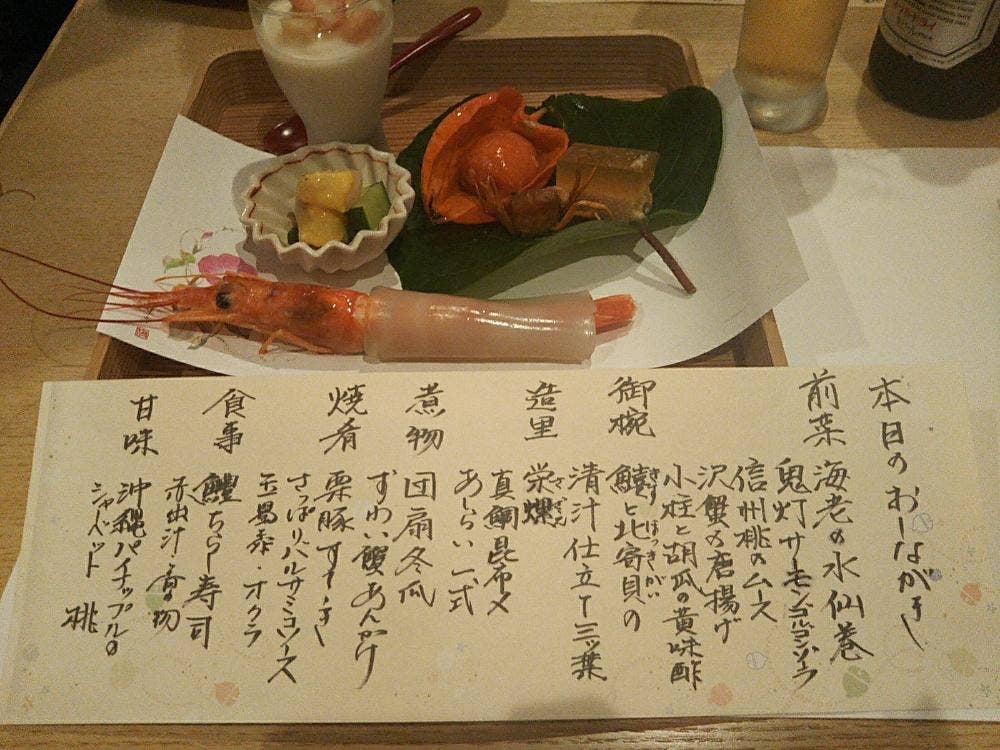 本日のおしながき
前菜 海老の水仙巻
鬼灯サーモンゴルゴンゾーラ
信州桃のムース
沢蟹の唐揚げ
小柱と胡瓜の黄味酢
御椀 鱚と北寄貝の
きす ほっきがい
清汁仕立て三ッ葉
造里 栄螺
さざえ
真鯛昆布〆
あしらい一式
煮物 団扇冬瓜
ずわい蟹あんかけ
焼肴 栗豚すてーき
さっぱりバルサミコソース
玉蜀黍・オクラ
食事 鱧ちらし寿司
赤出汁 香の物
甘味 沖縄パイナップルの
シャーベット 桃